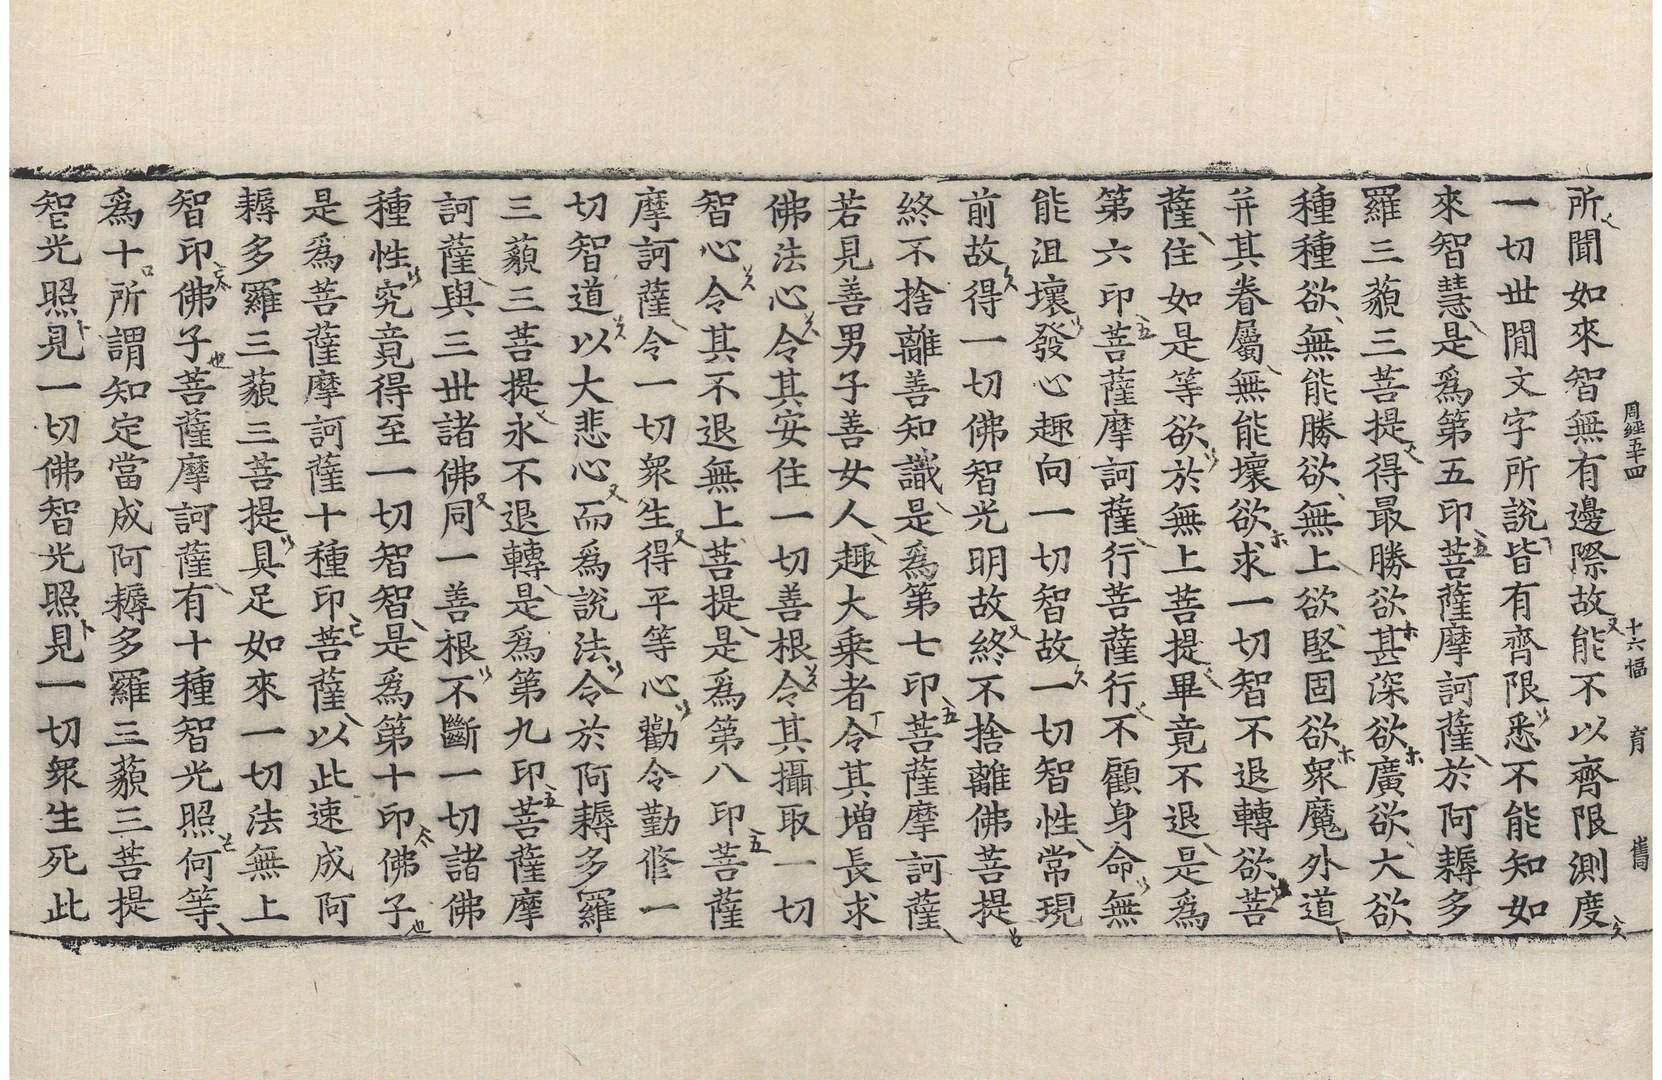 周經五十四　十六幅　育　舊
所聞如來智無有邊際故能不以齊限測度
一切世閒文字所說皆有齊限悉不能知如
來智慧是爲第五印菩薩摩訶薩於阿耨多
羅三藐三菩提得最勝欲甚深欲廣欲大欲
種種欲無能勝欲無上欲堅固欲衆魔外道
幷其眷屬無能壞欲求一切智不退轉欲菩
薩住如是等欲於無上菩提畢竟不退是爲
第六印菩薩摩訶薩行菩薩行不顧身命無
能沮壞發心趣向一切智故一切智性常現
前故得一切佛智光明故終不捨離佛菩提
終不捨離善知識是爲第七印菩薩摩訶薩
若見善男子善女人趣大乘者令其增長求
佛法心令其安住一切善根令其攝取一切
智心令其不退無上菩提是爲第八印菩薩
摩訶薩令一切衆生得平等心勸令勤修一
切智道以大悲心而爲說法令於阿耨多羅
三藐三菩提永不退轉是爲第九印菩薩摩
訶薩與三世諸佛同一善根不斷一切諸佛
種性究竟得至一切智智是爲第十印佛子
是爲菩薩摩訶薩十種印菩薩以此速成阿
耨多羅三藐三菩提具足如來一切法無上
智印佛子菩薩摩訶薩有十種智光照何等
爲十所謂知定當成阿耨多羅三藐三菩提
智光照見一切佛智光照見一切衆生死此